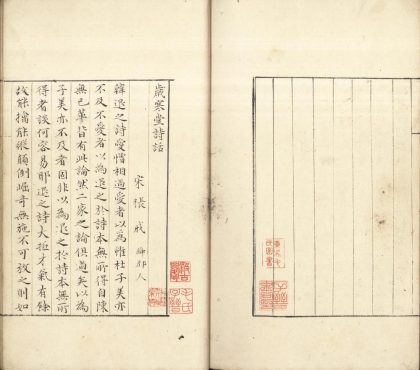 歲寒堂詩話
宋 張 戒 絳郡人
韓退之詩愛憎相過愛者以為雖杜子美亦
不及不愛者以為退之於詩本無所得自陳
無已輩皆有此論然二家之論俱過矣以為
子美亦不及者固非以為退之於詩本無所
得者談何容易耶退之詩大抵才氣有餘
故能擒能縱顛倒崛奇無施不可放之則如
毛氏子晉